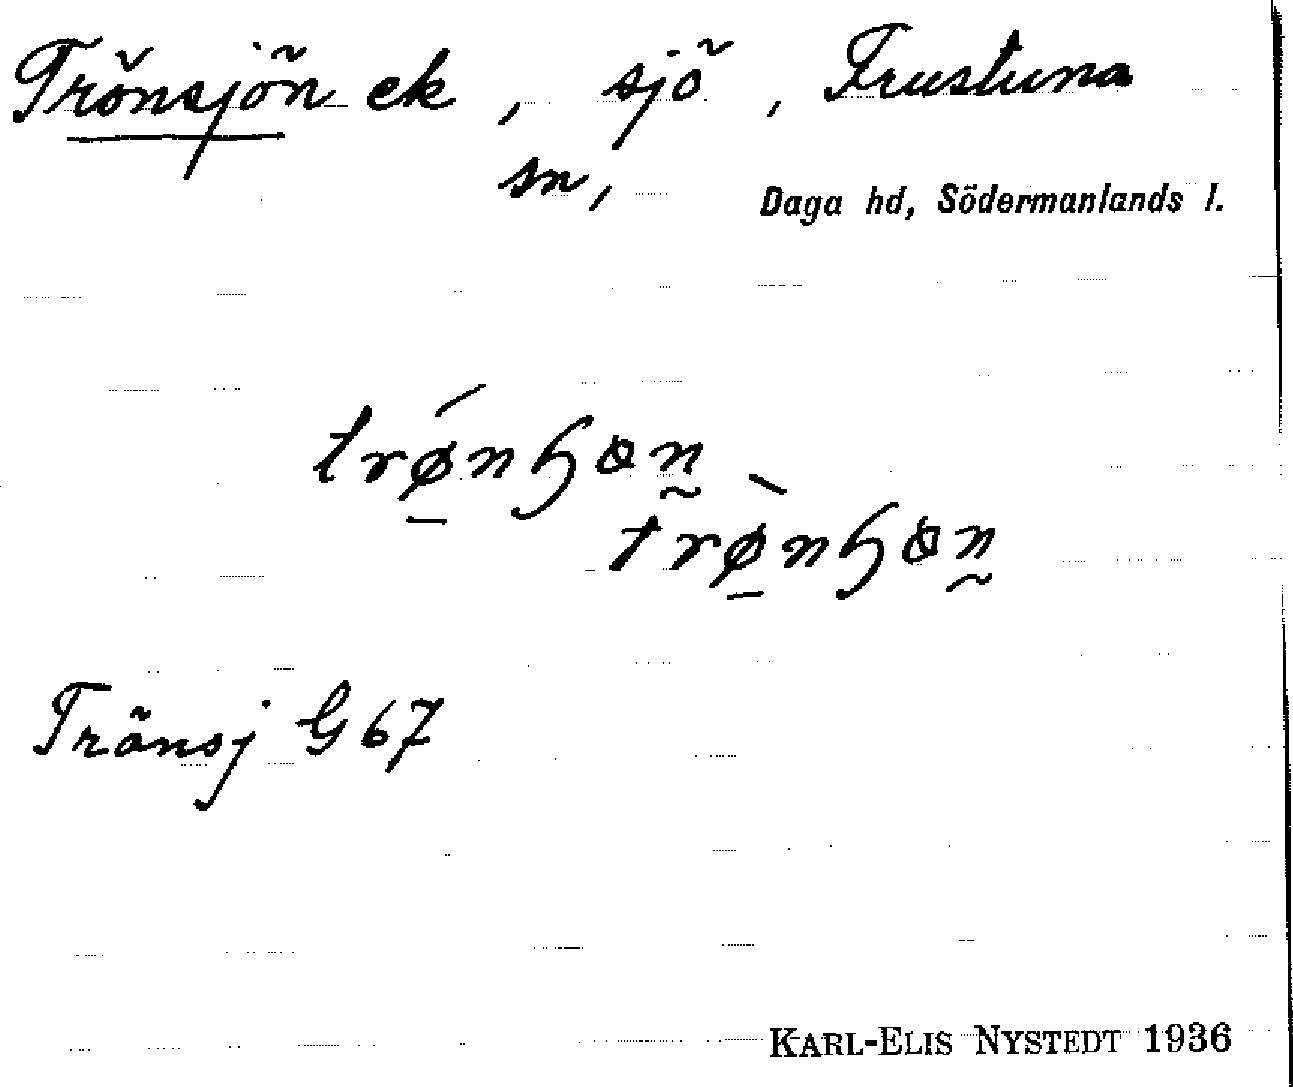 Trönsjön ek, sjö, Frustuna
sn,
Daga hd, Södermanlands l.
trǿ̠nꜧøn̰
trø̠̀nꜧøn̰
Trönsj G 67
KARL-ELIS NYSTEDT 1936